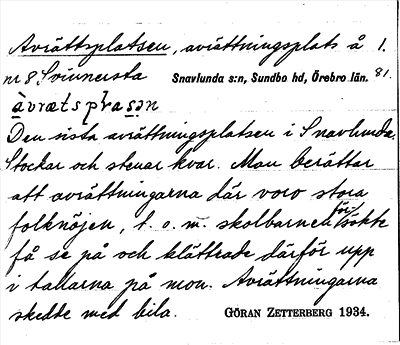 Avrättsplatsen, avrättningsplats å 1.
nr 8 Svinnersta Snavlunda s:n, Sundbo hd, Örebro län. 81.
Den sista avrättningsplatsen i Snavlunda.
Stockar och stenar kvar. Man berättar
att avrättningarna där voro stora
folknöjen, t. o. m. skolbarnen försökte
få se på och klättrade därför upp
i tallarna på mon. Avrättningarna
skedde med bila. GÖRAN ZETTERBERG 1934.